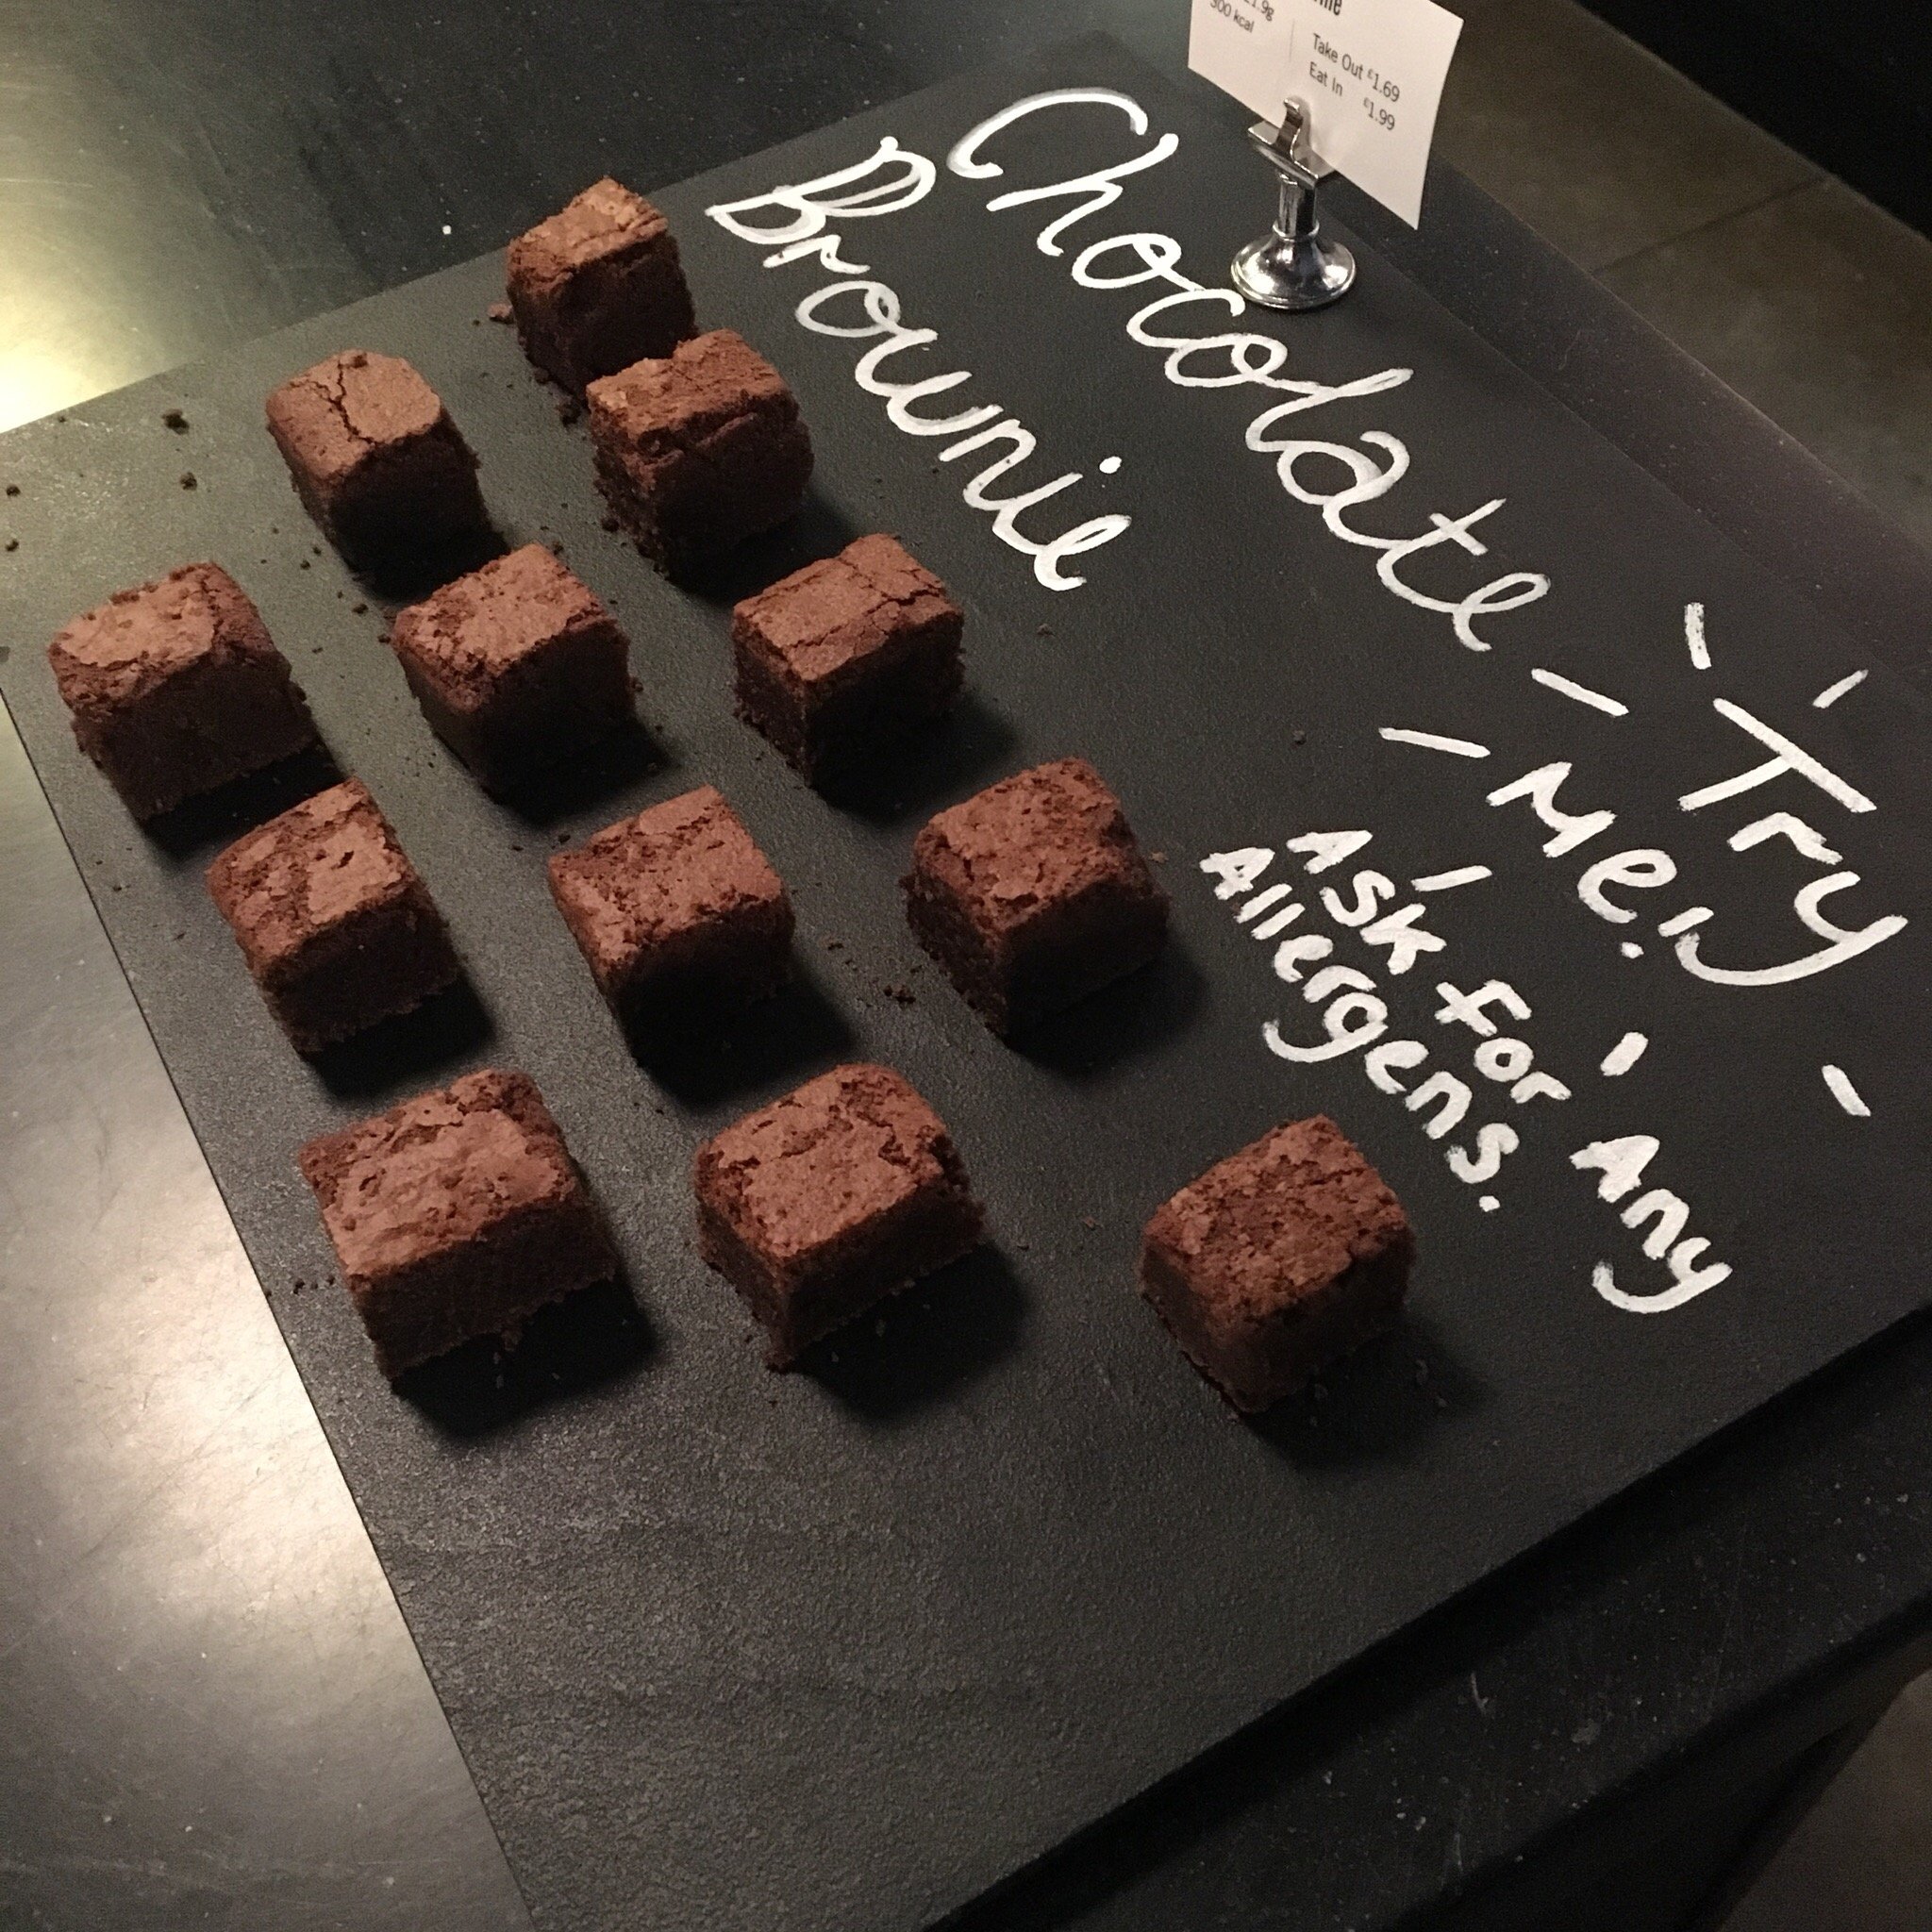 300 kcal
Take Out £1.69
Eat In £1.99
Chocolate
Brownie
Try
Me!
Ask for Any
Allergens.